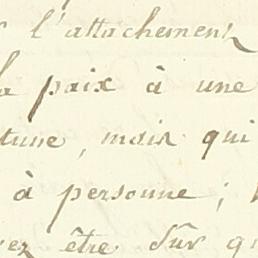 l'attachement
la paix à une
tune, mais qui
à personne ;
ez être sûr q